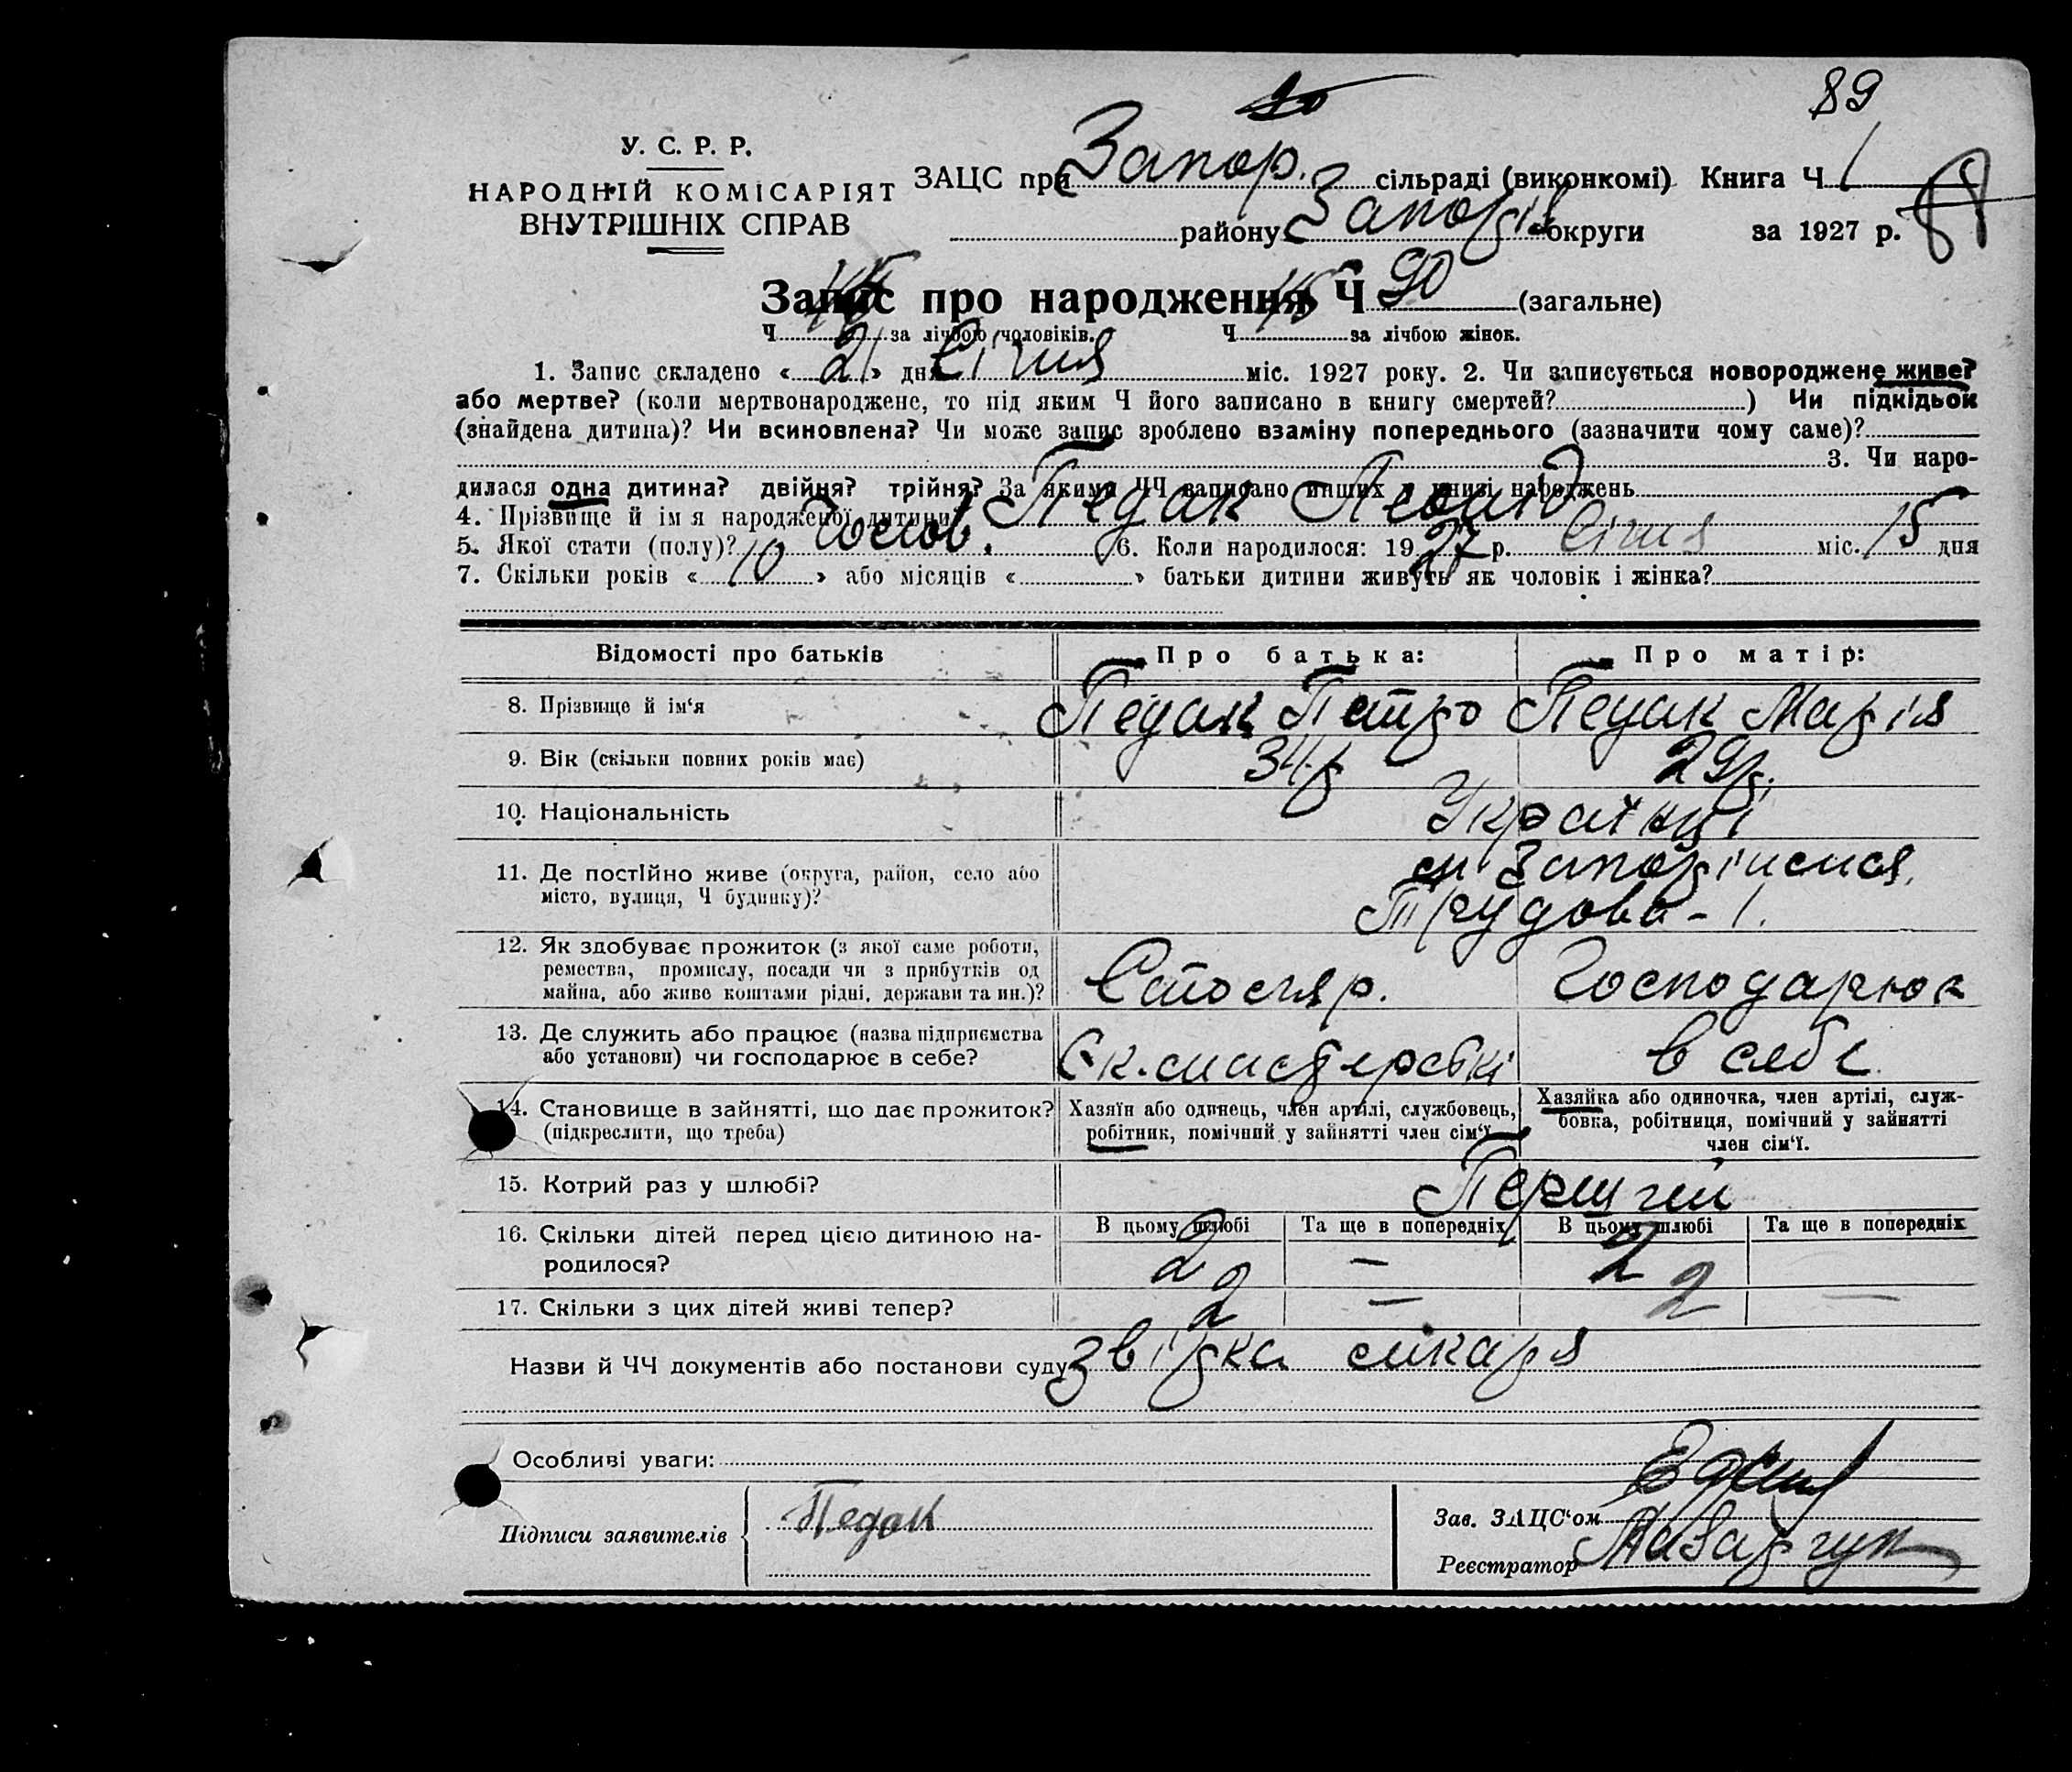 89
У. С. Р. Р.
НАРОДНІЙ КОМІСАРІЯТ
ВНУТРІШНІХ СПРАВ
ЗАЦС при Запор. сільраді (виконкомі) Книга Ч 1
району Запоріз округи за 1927 р.
Запис про народження Ч 90 (загальне)
Ч за лічбою чоловіків. Ч за лічбою жінок.
1. Запис складено « 21 » дня Січня міс. 1927 року. 2. Чи записується новороджене живе?
або мертве? (коли мертвонароджене, то під яким Ч його записано в книгу смертей? ) Чи підкідьок
(знайдена дитина)? Чи всиновлена? Чи може запис зроблено взаміну попереднього (зазначити чому саме)?
3. Чи наро-
дилася одна дитина? двійня? трійня? За якими ЧЧ записано инших в книзі народжень
4. Прізвище й ім я народженої дитини Педак Леонід
5. Якої стати (полу)? Чолов. 6. Коли народилося: 1927 р. Січня міс. 15 дня
7. Скільки років « 10 » або місяців « » батьки дитини живуть як чоловік і жінка?
Відомості про батьків Про батька: Про матір:
8. Прізвище й ім‘я Педак Петро Педак Марія
9. Вік (скільки повних років має) 34 р 29 р.
10. Національність Українці
11. Де постійно живе (округа, район, село або м Запоріжжя,
місто, вулиця, Ч будинку)? Трудова - 1.
12. Як здобуває прожиток (з якої саме роботи,
ремества, промислу, посади чи з прибутків од
майна, або живе коштами рідні, держави та ин.)? Столяр. Господарює
13. Де служить або працює (назва підприємства
або установи) чи господарює в себе? Єк. мастерські в себе
14. Становище в зайнятті, що дає прожиток?
(підкреслити, що треба)
Хазяїн або одинець, член артілі, службовець,
робітник, помічний у зайнятті член сім‘ї
Хазяйка або одиночка, член артілі, служ-
бовка, робітниця, помічний у зайнятті
член сім‘ї.
15. Котрий раз у шлюбі? Перший
В цьому шлюбі Та ще в попередніх В цьому шлюбі Та ще в попередніх
16. Скільки дітей перед цією дитиною на-
родилося? 2 — 2
17. Скільки з цих дітей живі тепер? 2 — 2 —
Назви й ЧЧ документів або постанови суду звірка лікаря
Особливі уваги:
Підписи заявителів Педак
Зав. ЗАЦС‘ом
Реєстратор